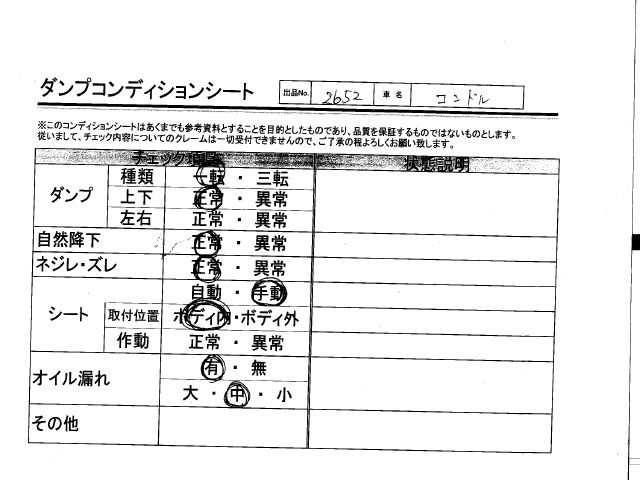 ダンプコンディションシート 出品No. 2652 車名 コンドル
※このコンディションシートはあくまでも参考資料とすることを目的としたものであり、品質を保証するものではないものとします。
従いまして、チェック内容についてのクレームは一切受付できませんので、ご了承の程よろしくお願い致します。
チェック項目 状態説明
ダンプ 種類 一転 ・ 三転
上下 正常 ・ 異常
左右 正常 ・ 異常
自然降下 正常 ・ 異常
ネジレ・ズレ 正常 ・ 異常
シート 自動 ・ 手動
取付位置 ボディ内・ボディ外
作動 正常 ・ 異常
オイル漏れ 有 ・ 無
大 ・ 中 ・ 小
その他